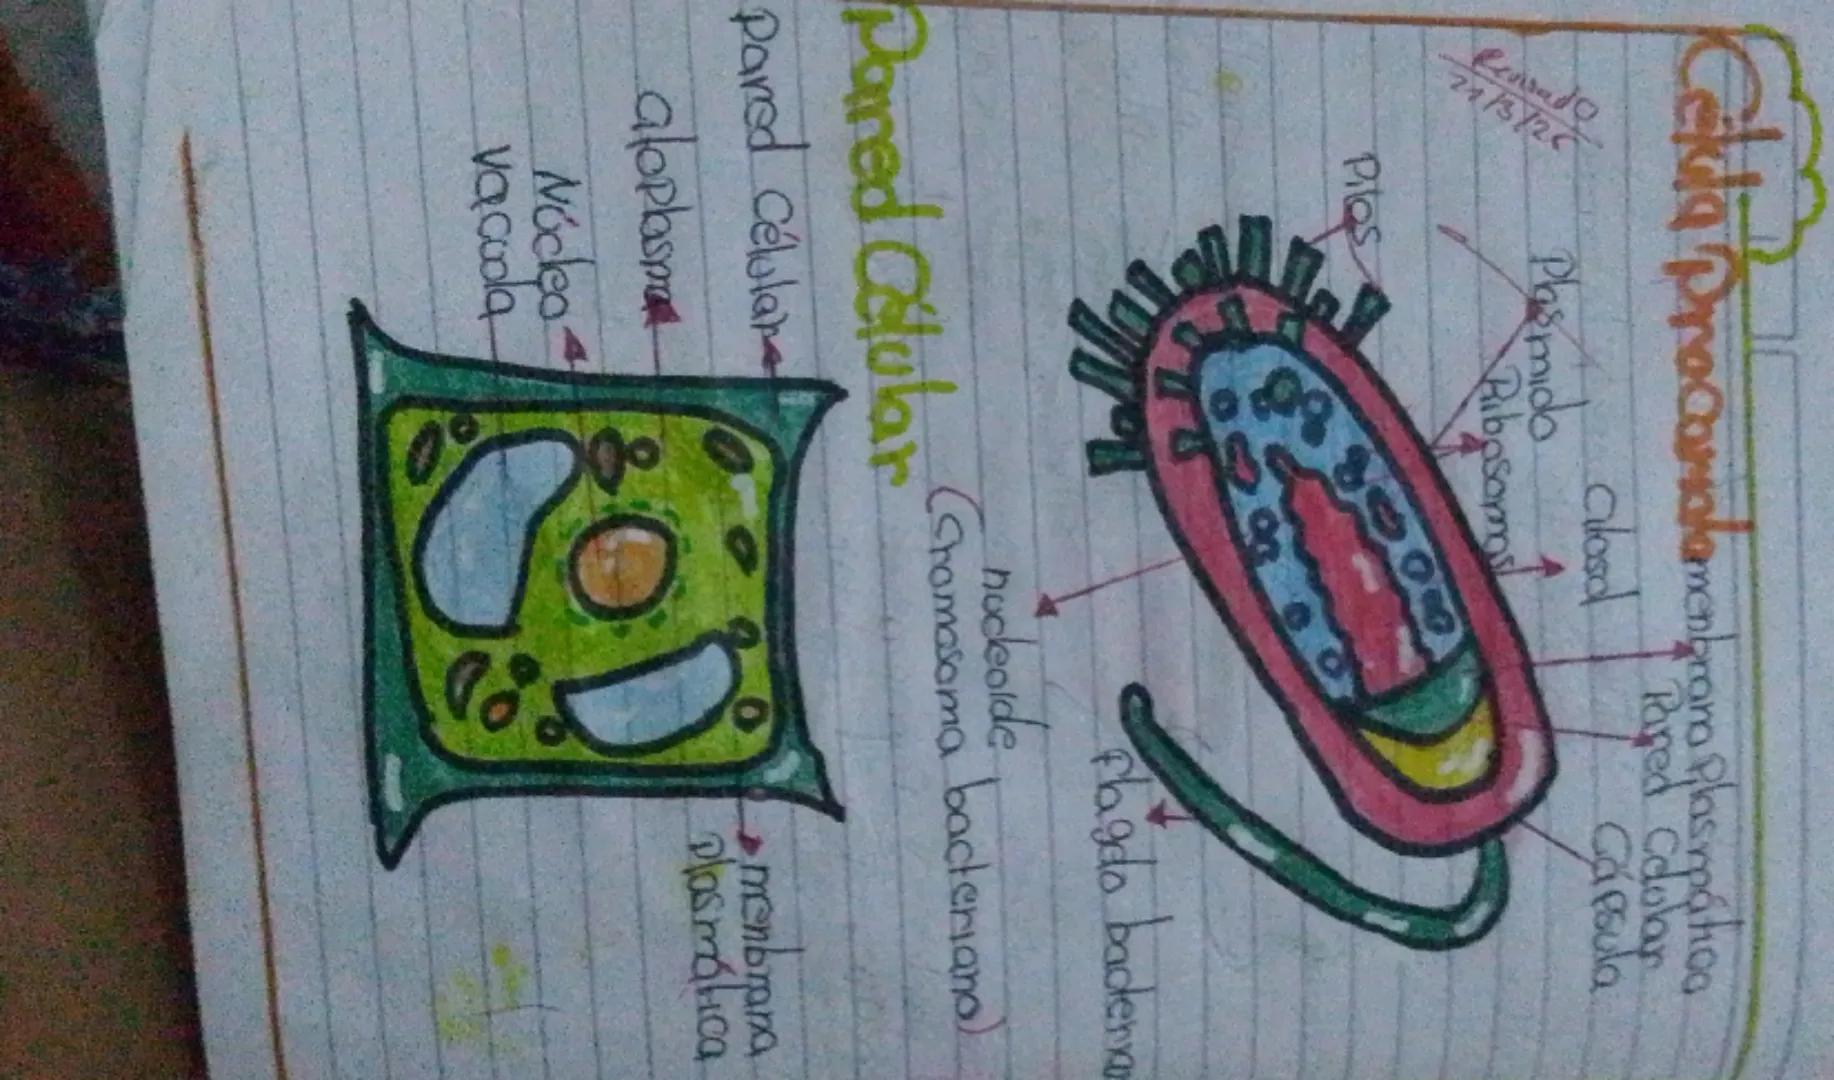 Célula procarionta
Revisado
21/3/26
membrana plasmática
Pared Celular
Cápsula
Citosol
Plasmido
Ribosomas
Pilos
Flagelo bacteriano
nucleoide
(Cromosoma bacteriano)
Pared Célular
Pared Célular
citoplasma
Núcleo
Vacuola
membrana
plasmática